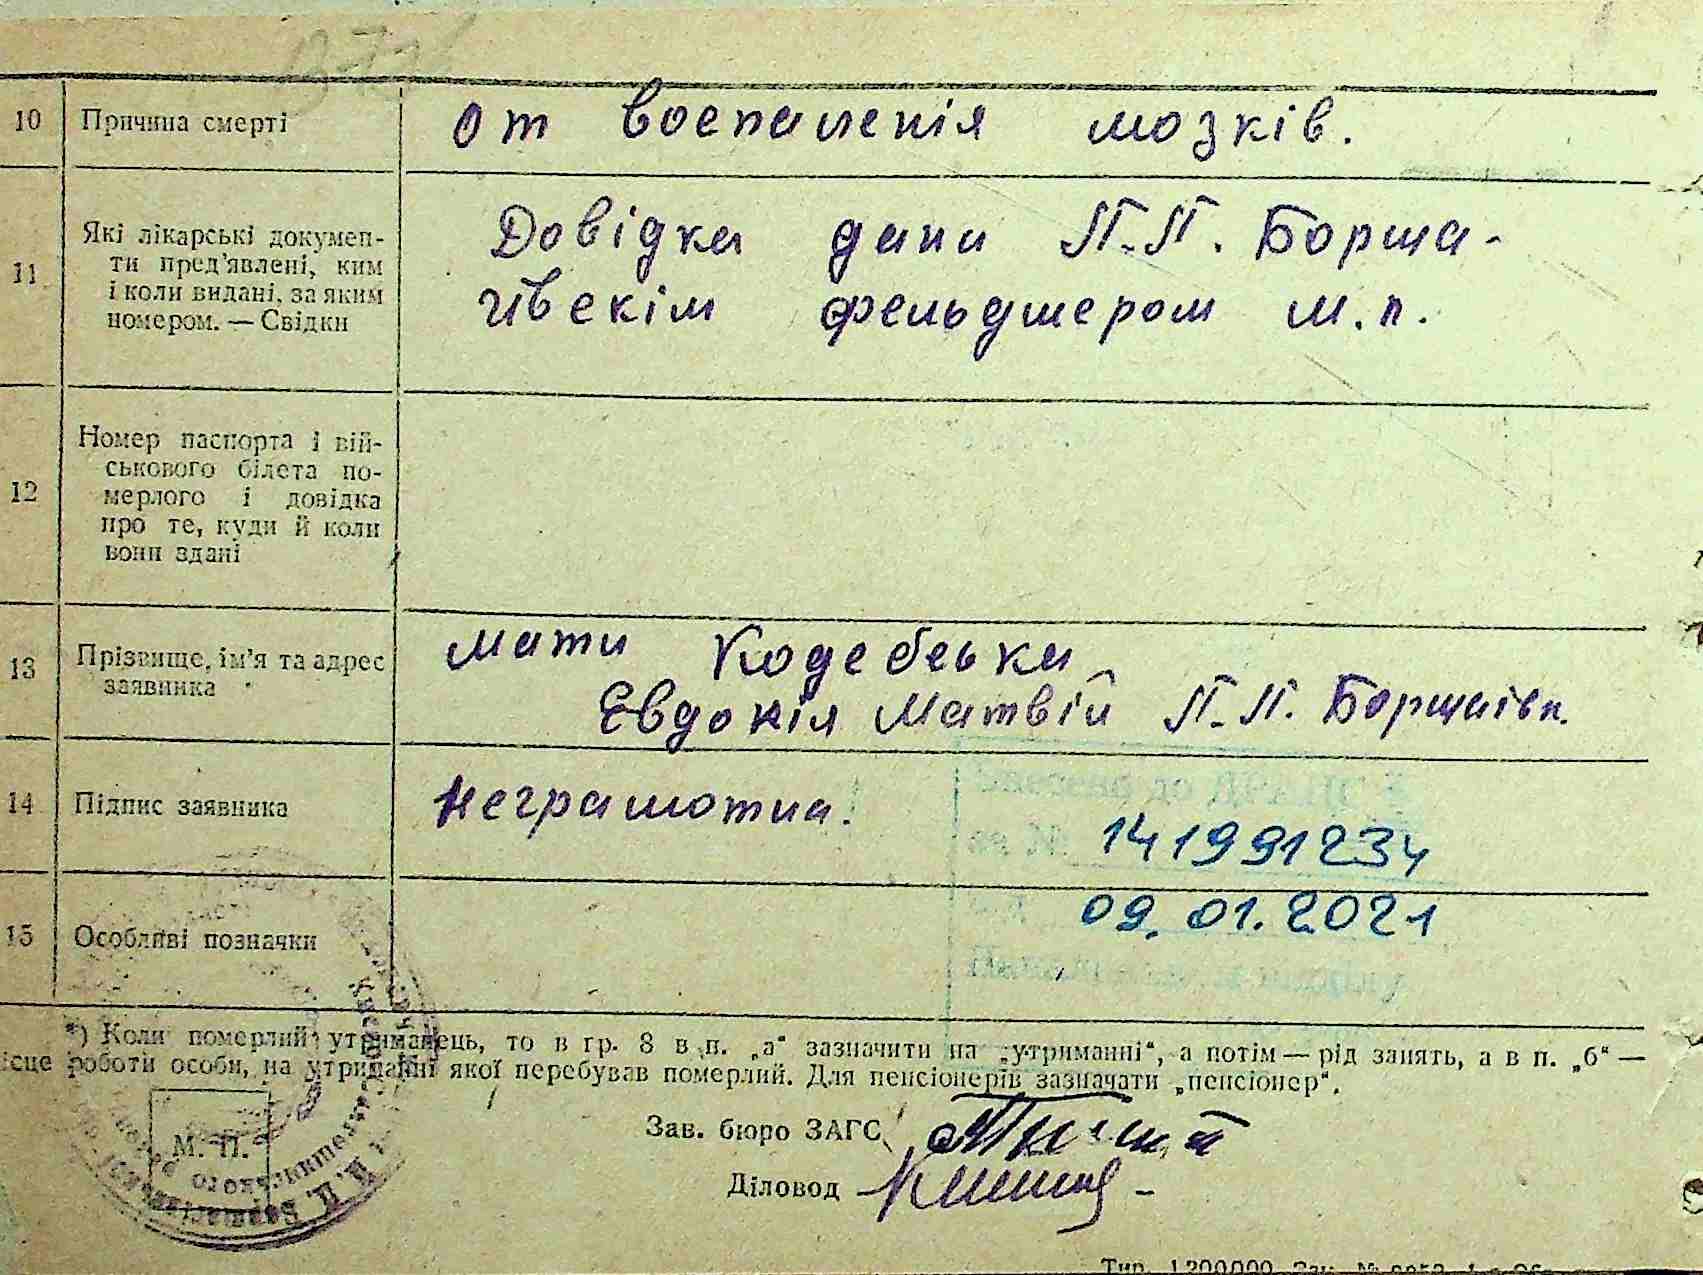 10 Причина смерті от воспаленія мозків.
11 Які лікарські докумен-
ти пред'явлені, ким
і коли видані, за яким
номером. — Свідки
Довідка дана П.П. Борща-
гівскім фельдшером м.п.
12 Номер паспорта і вій-
ськового білета по-
мерлого і довідка
про те, куди й коли
вони здані
13 Прізвище, ім'я та адрес
заявника
мати Кодебська
Евдокія Матвій П.П. Борщаівк.
14 Підпис заявника неграмотна.
141991234
15 Особливі позначки 09.01.2021
*) Коли померлий утриманець, то в гр. 8 в п. „а“ зазначити на „утриманні“, а потім — рід занять, а в п. „б“ —
ісце роботи особи, на утриманні якої перебував померлий. Для пенсіонерів зазначати „пенсіонер“.
М. П.
Зав. бюро ЗАГС
Діловод